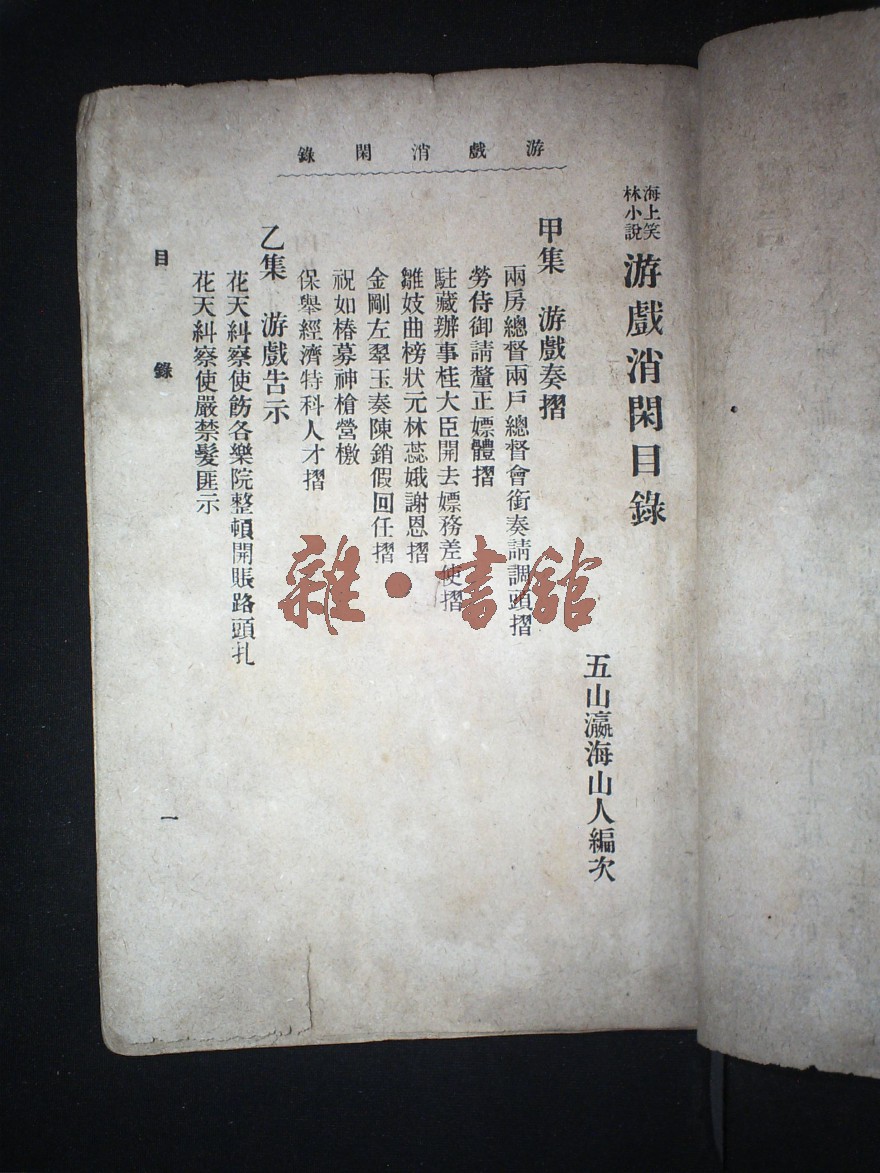 游戲消閑錄
海上笑
林小說
游戲消閑目錄
五山瀛海山人編次
甲集　游戲奏摺
兩房總督兩戶總督會銜奏請調頭摺
勞侍御請釐正嫖體摺
駐藏辦事桂大臣開去嫖務差使摺
雛妓曲榜狀元林蕊娥謝恩摺
金剛左翠玉奏陳銷假回任摺
祝如椿募神槍營檄
保舉經濟特科人才摺
乙集　游戲告示
花天糾察使飭各樂院整頓開賬路頭扎
花天糾察使嚴禁髮匪示
目錄
一
雜·書館